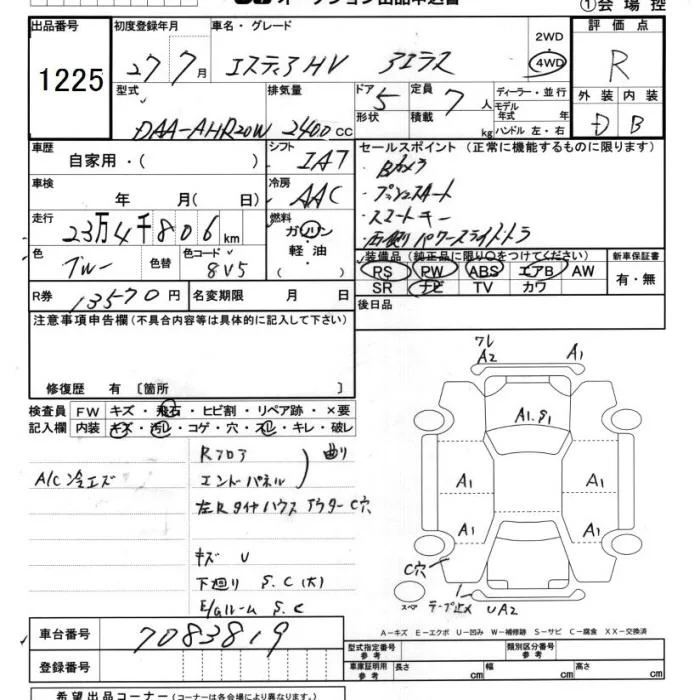 オークション出品申込書
①会場控
出品番号
1225
初度登録年月
27 7月
車名・グレード
エスティマHV アエラス
2WD
4WD
評価点
R
型式
DAA-AHR20W
排気量
2400 cc
ドア 5
形状
定員 7 人
積載 kg
ディーラー・並行
モデル
年式 年
ハンドル 左・右
外装 内装
D B
車歴
自家用・( )
シフト
IAT
セールスポイント (正常に機能するものに限ります)
・Bカメラ
・プッシュスタート
・スマートキー
・両側パワースライドドア
車検
年 月( 日)
冷房
AAC
走行
23万4千806km
燃料
ガソリン
軽・油
( )
色
ブルー
色替
色コード
8V5
装備品 (純正品に限り○をつけてください)
RS PW ABS エアB AW
SR ナビ TV カワ
新車保証書
有・無
R券
13570円
名変期限 月 日
後日品
注意事項申告欄 (不具合内容等は具体的に記入して下さい)
修復歴 有 〔箇所 〕
検査員
記入欄
FW キズ・飛石・ヒビ割・リペア跡・×要
内装 キズ・汚レ・コゲ・穴・スレ・キレ・破レ
A/C 冷エズ
Rフロア
エンドパネル
曲り
左Rタイヤハウス アウターC穴
キズ U
下廻り S.C(大)
E/gルーム S.C
ワレ
A2
A1
A1.S1
A1
A1
A1
A1
C穴
スペア
テープ止メ
UA2
A−キズ E−エクボ U−凹み W−補修跡 S−サビ C−腐食 XX−交換済
車台番号
7083819
登録番号
型式指定番号
参考
類別区分番号
参考
車庫証明用
参考
長さ cm 幅 cm 高さ cm
希望出品コーナー (コーナーは各会場により異なります。)